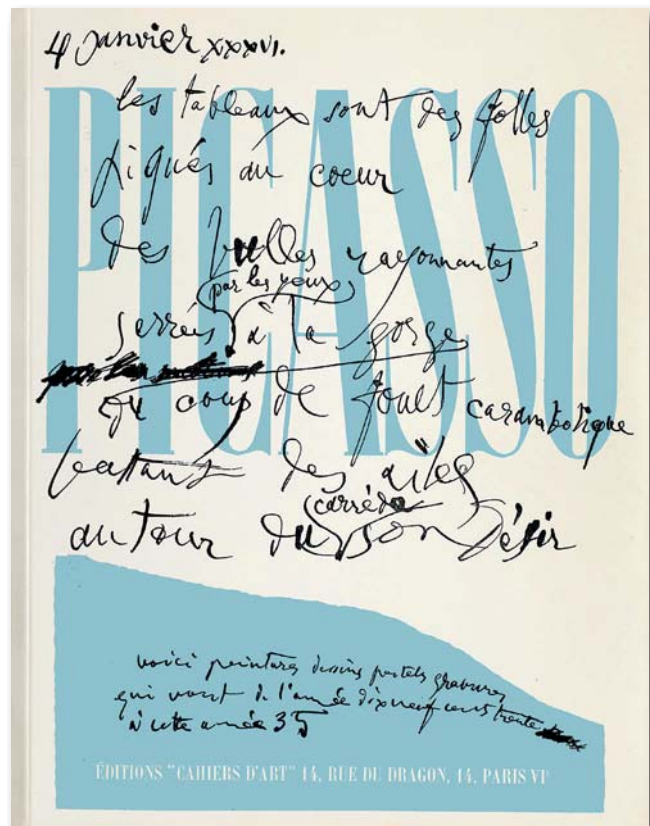 4 Janvier XXXVI.
PICASSO
les tableaux sont des folles
piqués au coeur
des bulles rayonnantes
(par les yeux)
serrés à la gorge
du coup de fouet carambolique
battant des ailes
(carré de)
autour du son désir
voici peintures dessins pastels gravures
qui vont de l'année dix neuf cent trente
à cette année 35
ÉDITIONS "CAHIERS D'ART" 14, RUE DU DRAGON, 14, PARIS VIᵉ